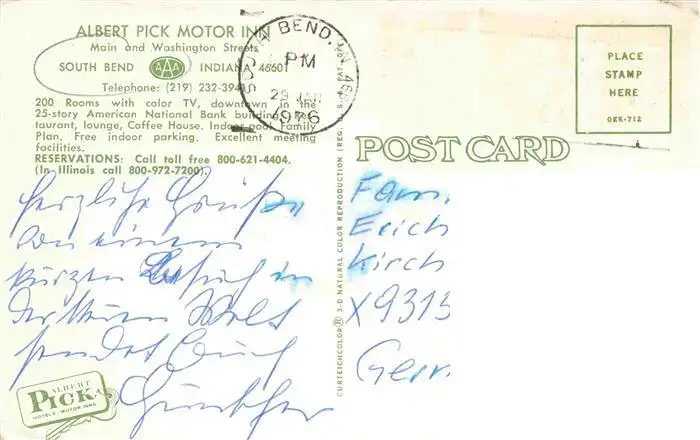 ALBERT PICK MOTOR INN
Main and Washington Streets
SOUTH BEND AAA INDIANA 46601
Telephone: (219) 232-3941
200 Rooms with color TV, downtown in the
25-story American National Bank building. Res-
taurant, lounge, Coffee House. Indoor pool. Family
Plan. Free indoor parking. Excellent meeting
facilities.
RESERVATIONS: Call toll free 800-621-4404.
(In Illinois call 800-972-7200).
BEND, IN
PM
29
1976
PLACE
STAMP
HERE
OEK-712
POST CARD
CURTEICHCOLOR® 3-D NATURAL COLOR REPRODUCTION (REG. U.S.A. PAT. OFF.)
Herzliche Grüße
von einem
kurzen Besuch in
der Neuen Welt
sendet Euch
Günther
Fam.
Erich
Kirch
X9313
Germ.
ALBERT
PICK
HOTELS · MOTOR INNS